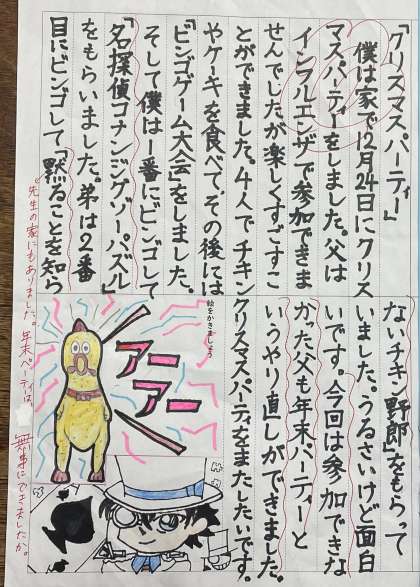 「クリスマスパーティー」
僕は家で12月24日にクリス
マスパーティーをしました。父は
インフルエンザで参加できま
せんでしたが楽しくすごすこ
とができました。4人でチキン
やケーキを食べて、その後には
「ビンゴゲーム大会」をしました。
そして僕は1番にビンゴして
「名探偵コナンジグソーパズル」
をもらいました。弟は2番
目にビンゴして「黙ることを知ら
ないチキン野郎」をもらって
いました。うるさいけど面白
いです。今回は参加できな
かった父も年末パーティーと
いうやり直しができました。
クリスマスパーティをまたしたいです。
絵をかきましょう
アー
アー
先生の家にもありました。年末パーティは、無事にできましたか。